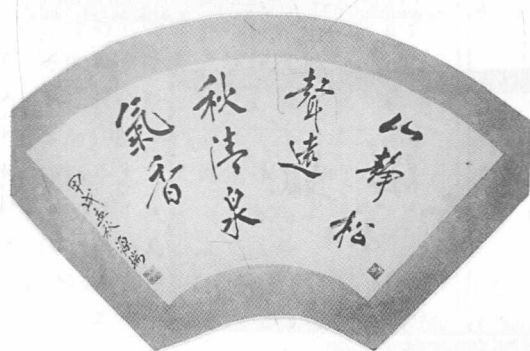 山静松
聲遠
秋清泉
氣香
甲戌